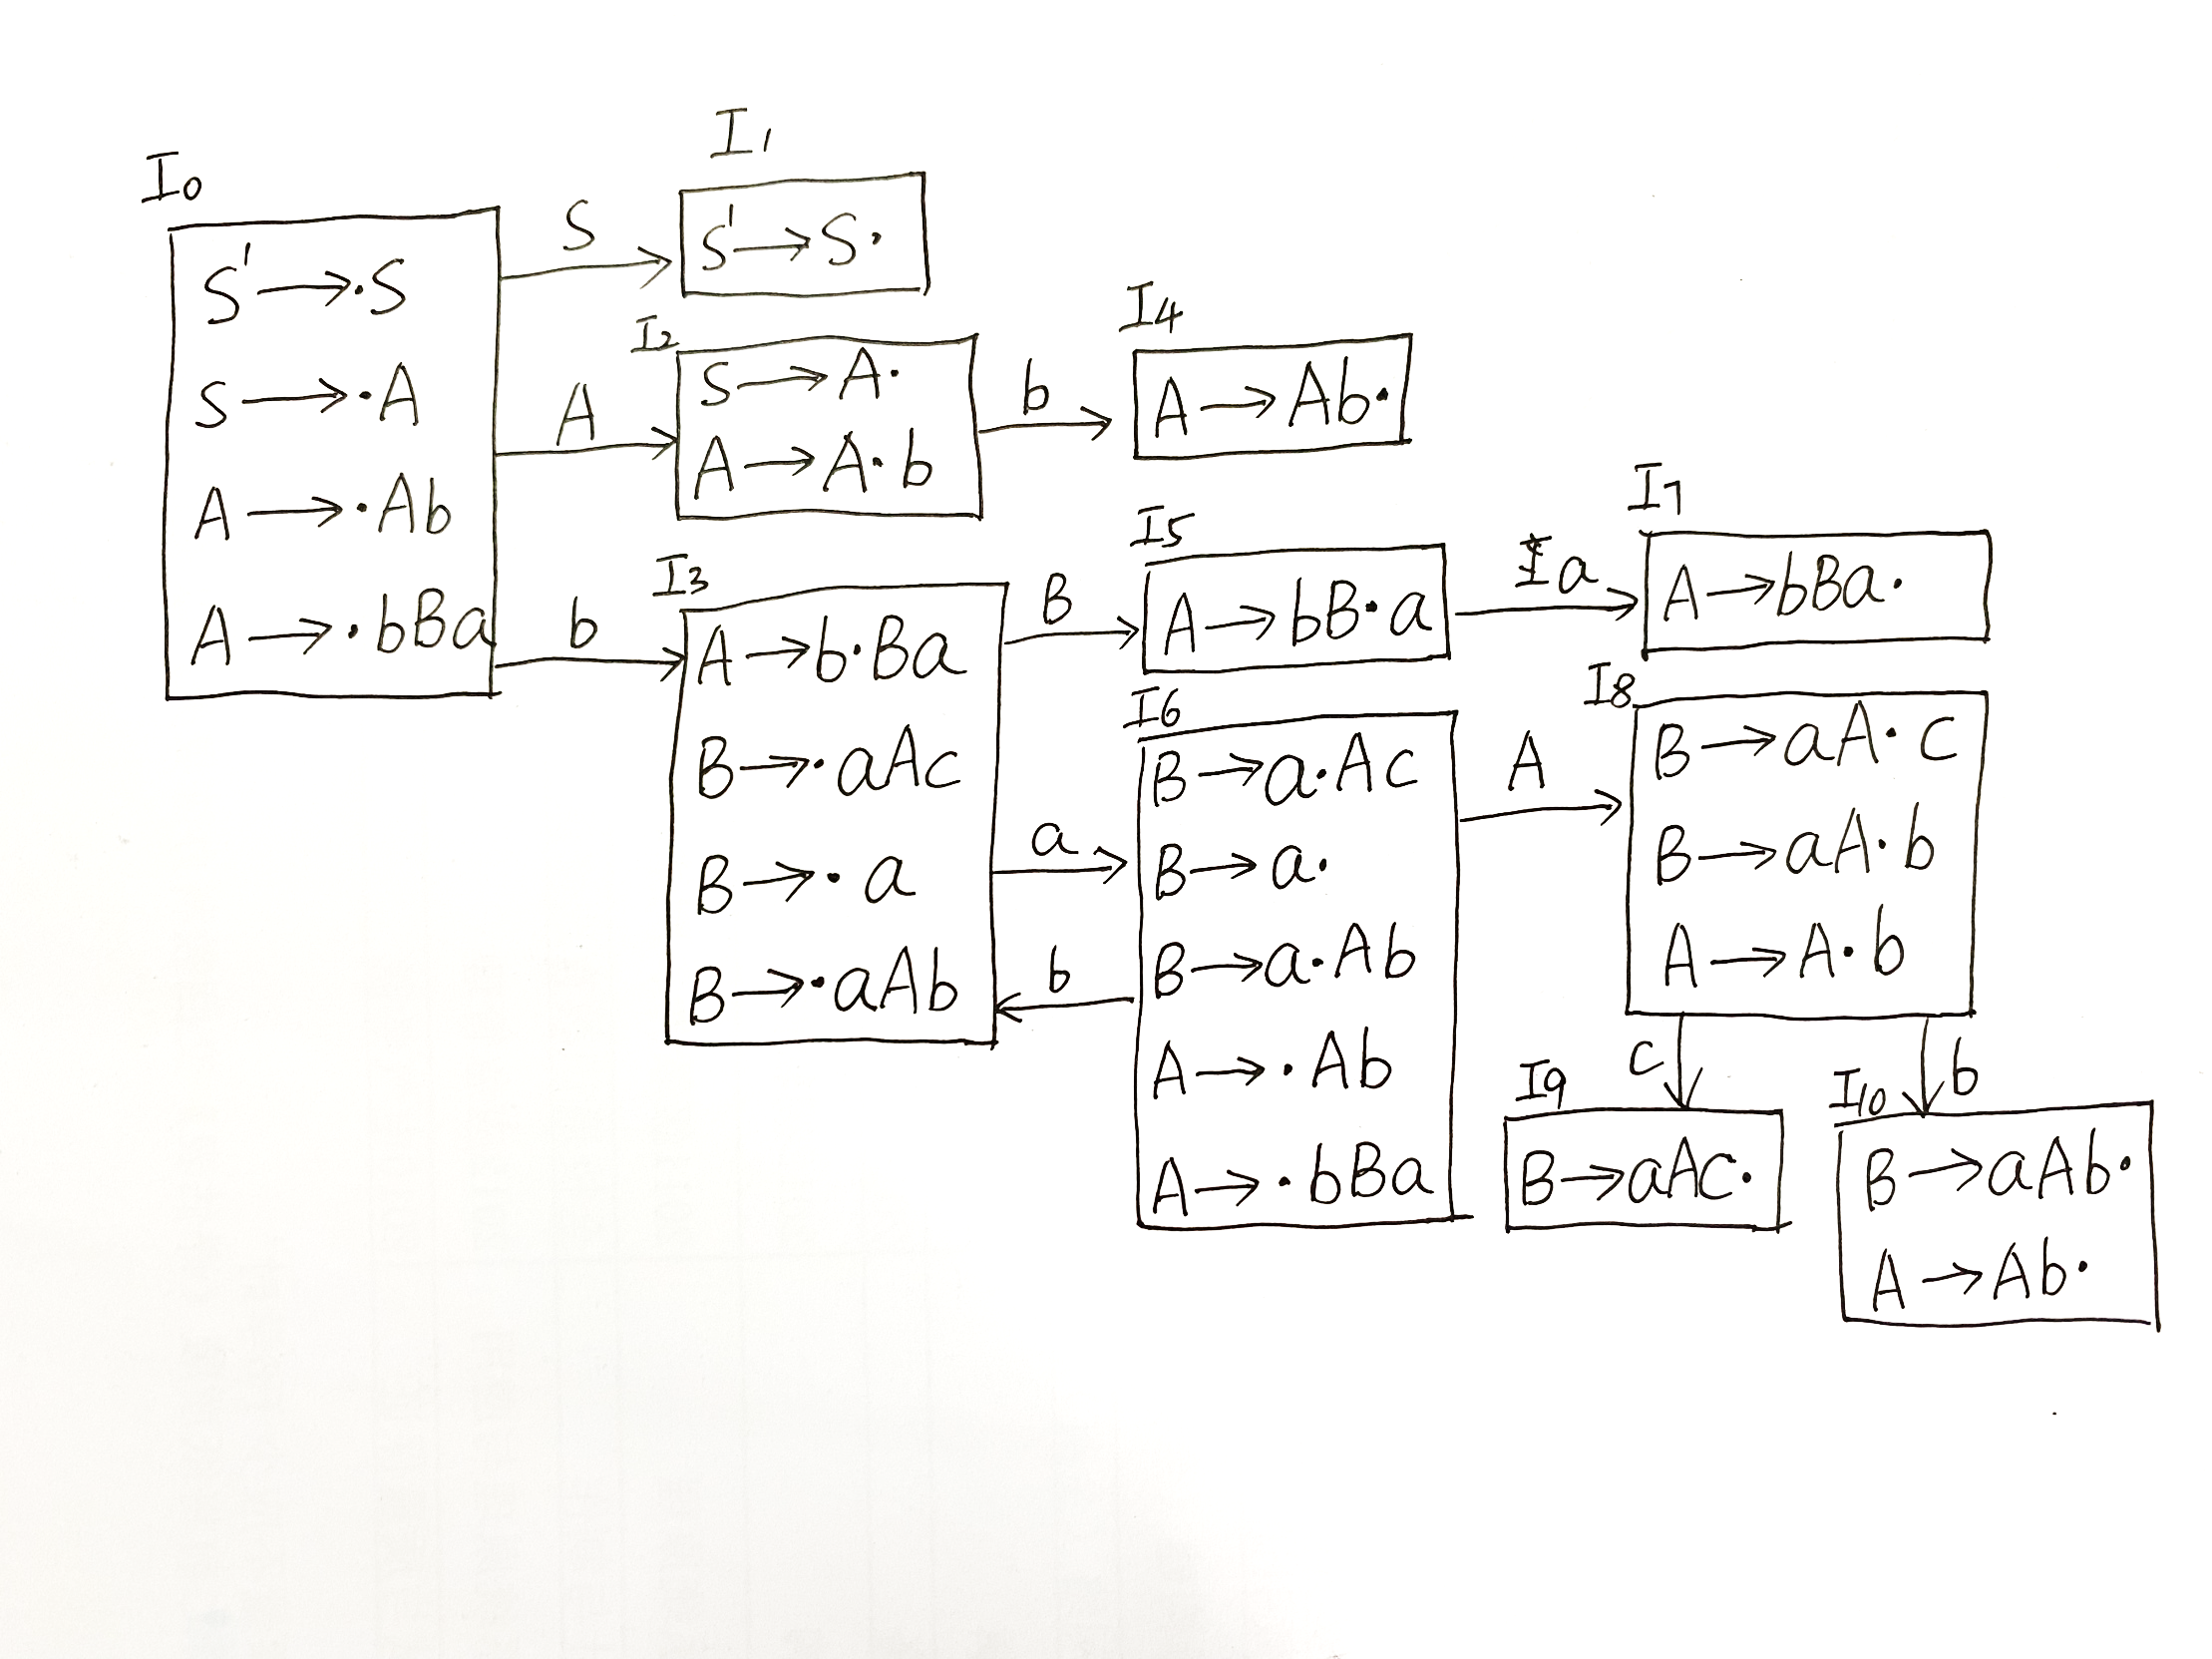 I0
S'→·S
S→·A
A→·Ab
A→·bBa
S
A
b
I1
S'→S·
I2
S→A·
A→A·b
b
I4
A→Ab·
I3
A→b·Ba
B→·aAc
B→·a
B→·aAb
B
a
b
I5
A→bB·a
a
I7
A→bBa·
I6
B→a·Ac
B→a·
B→a·Ab
A→·Ab
A→·bBa
A
I8
B→aA·c
B→aA·b
A→A·b
c
b
I9
B→aAc·
I10
B→aAb·
A→Ab·